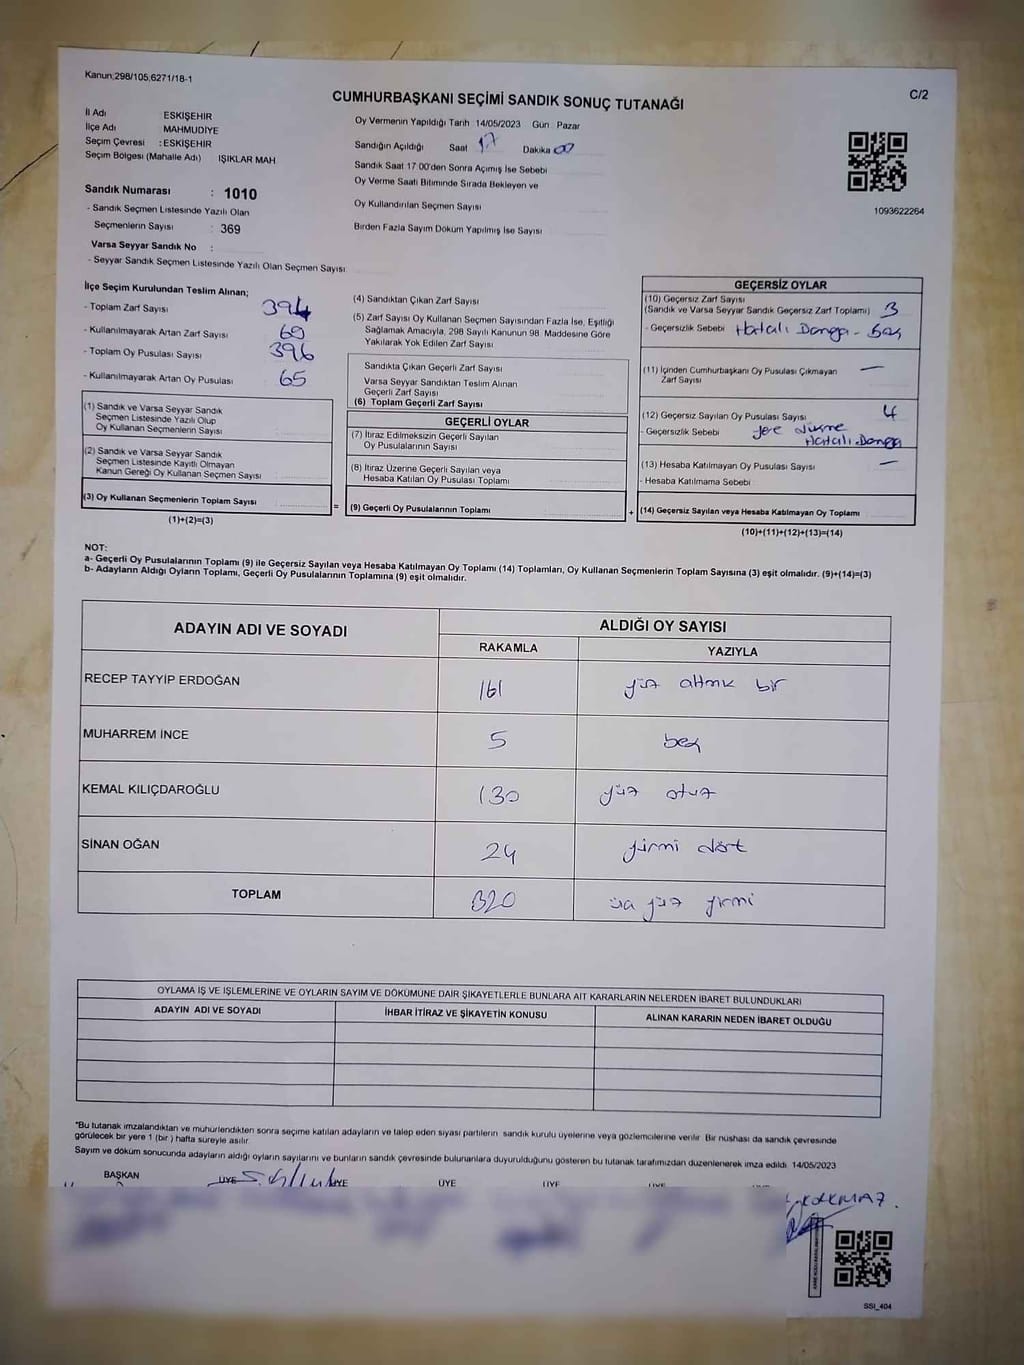 Kanun;298/105,6271/18-1
CUMHURBAŞKANI SEÇİMİ SANDIK SONUÇ TUTANAĞI
C/2
İl Adı ESKİŞEHİR
İlçe Adı MAHMUDİYE
Seçim Çevresi : ESKİŞEHİR
Seçim Bölgesi (Mahalle Adı) IŞIKLAR MAH
Sandık Numarası : 1010
- Sandık Seçmen Listesinde Yazılı Olan
Seçmenlerin Sayısı : 369
Varsa Seyyar Sandık No :
- Seyyar Sandık Seçmen Listesinde Yazılı Olan Seçmen Sayısı
Oy Vermenin Yapıldığı Tarih 14/05/2023 Gün Pazar
Sandığın Açıldığı Saat 17 Dakika 00
Sandık Saat 17:00'den Sonra Açımış İse Sebebi
Oy Verme Saati Bitiminde Sırada Bekleyen ve
Oy Kullandırılan Seçmen Sayısı
Birden Fazla Sayım Döküm Yapılmış İse Sayısı
1093622264
İlçe Seçim Kurulundan Teslim Alınan;
- Toplam Zarf Sayısı 394
- Kullanılmayarak Artan Zarf Sayısı
- Toplam Oy Pusulası Sayısı 396
- Kullanılmayarak Artan Oy Pusulası 65
(1) Sandık ve Varsa Seyyar Sandık
Seçmen Listesinde Yazılı Olup
Oy Kullanan Seçmenlerin Sayısı
(2) Sandık ve Varsa Seyyar Sandık
Seçmen Listesinde Kayıtlı Olmayan
Kanun Gereği Oy Kullanan Seçmen Sayısı
(3) Oy Kullanan Seçmenlerin Toplam Sayısı
(1)+(2)=(3)
=
(4) Sandıktan Çıkan Zarf Sayısı
(5) Zarf Sayısı Oy Kullanan Seçmen Sayısından Fazla İse, Eşitliği
Sağlamak Amacıyla, 298 Sayılı Kanunun 98. Maddesine Göre
Yakılarak Yok Edilen Zarf Sayısı
Sandıkta Çıkan Geçerli Zarf Sayısı
Varsa Seyyar Sandıktan Teslim Alınan
Geçerli Zarf Sayısı
(6) Toplam Geçerli Zarf Sayısı
GEÇERLİ OYLAR
(7) İtiraz Edilmeksizin Geçerli Sayılan
Oy Pusulalarının Sayısı
(8) İtiraz Üzerine Geçerli Sayılan veya
Hesaba Katılan Oy Pusulası Toplamı
(9) Geçerli Oy Pusulalarının Toplamı
+
GEÇERSİZ OYLAR
(10) Geçersiz Zarf Sayısı
(Sandık ve Varsa Seyyar Sandık Geçersiz Zarf Toplamı) 3
- Geçersizlik Sebebi Hatalı Damga - Boş
(11) İçinden Cumhurbaşkanı Oy Pusulası Çıkmayan —
Zarf Sayısı
(12) Geçersiz Sayılan Oy Pusulası Sayısı 4
- Geçersizlik Sebebi yere düşme
Hatalı Damga
(13) Hesaba Katılmayan Oy Pusulası Sayısı —
- Hesaba Katılmama Sebebi
(14) Geçersiz Sayılan veya Hesaba Katılmayan Oy Toplamı
(10)+(11)+(12)+(13)=(14)
NOT:
a- Geçerli Oy Pusulalarının Toplamı (9) ile Geçersiz Sayılan veya Hesaba Katılmayan Oy Toplamı (14) Toplamları, Oy Kullanan Seçmenlerin Toplam Sayısına (3) eşit olmalıdır. (9)+(14)=(3)
b- Adayların Aldığı Oyların Toplamı, Geçerli Oy Pusulalarının Toplamına (9) eşit olmalıdır.
ADAYIN ADI VE SOYADI ALDIĞI OY SAYISI
RAKAMLA YAZIYLA
RECEP TAYYİP ERDOĞAN 161 yüz altmış bir
MUHARREM İNCE 5 beş
KEMAL KILIÇDAROĞLU 130 yüz otuz
SİNAN OĞAN 24 yirmi dört
TOPLAM 320 üç yüz yirmi
OYLAMA İŞ VE İŞLEMLERİNE VE OYLARIN SAYIM VE DÖKÜMÜNE DAİR ŞİKAYETLERLE BUNLARA AİT KARARLARIN NELERDEN İBARET BULUNDUKLARI
ADAYIN ADI VE SOYADI İHBAR İTİRAZ VE ŞİKAYETİN KONUSU ALINAN KARARIN NEDEN İBARET OLDUĞU
*Bu tutanak imzalandıktan ve mühürlendikten sonra seçime katılan adayların ve talep eden siyasi partilerin sandık kurulu üyelerine veya gözlemcilerine verilir. Bir nüshası da sandık çevresinde
görülecek bir yere 1 (bir) hafta süreyle asılır.
Sayım ve döküm sonucunda adayların aldığı oyların sayılarını ve bunların sandık çevresinde bulunanlara duyurulduğunu gösteren bu tutanak tarafımızdan düzenlenerek imza edildi. 14/05/2023
BAŞKAN ÜYE ÜYE ÜYE ÜYE ÜYE
KORKMAZ.
SSI_404